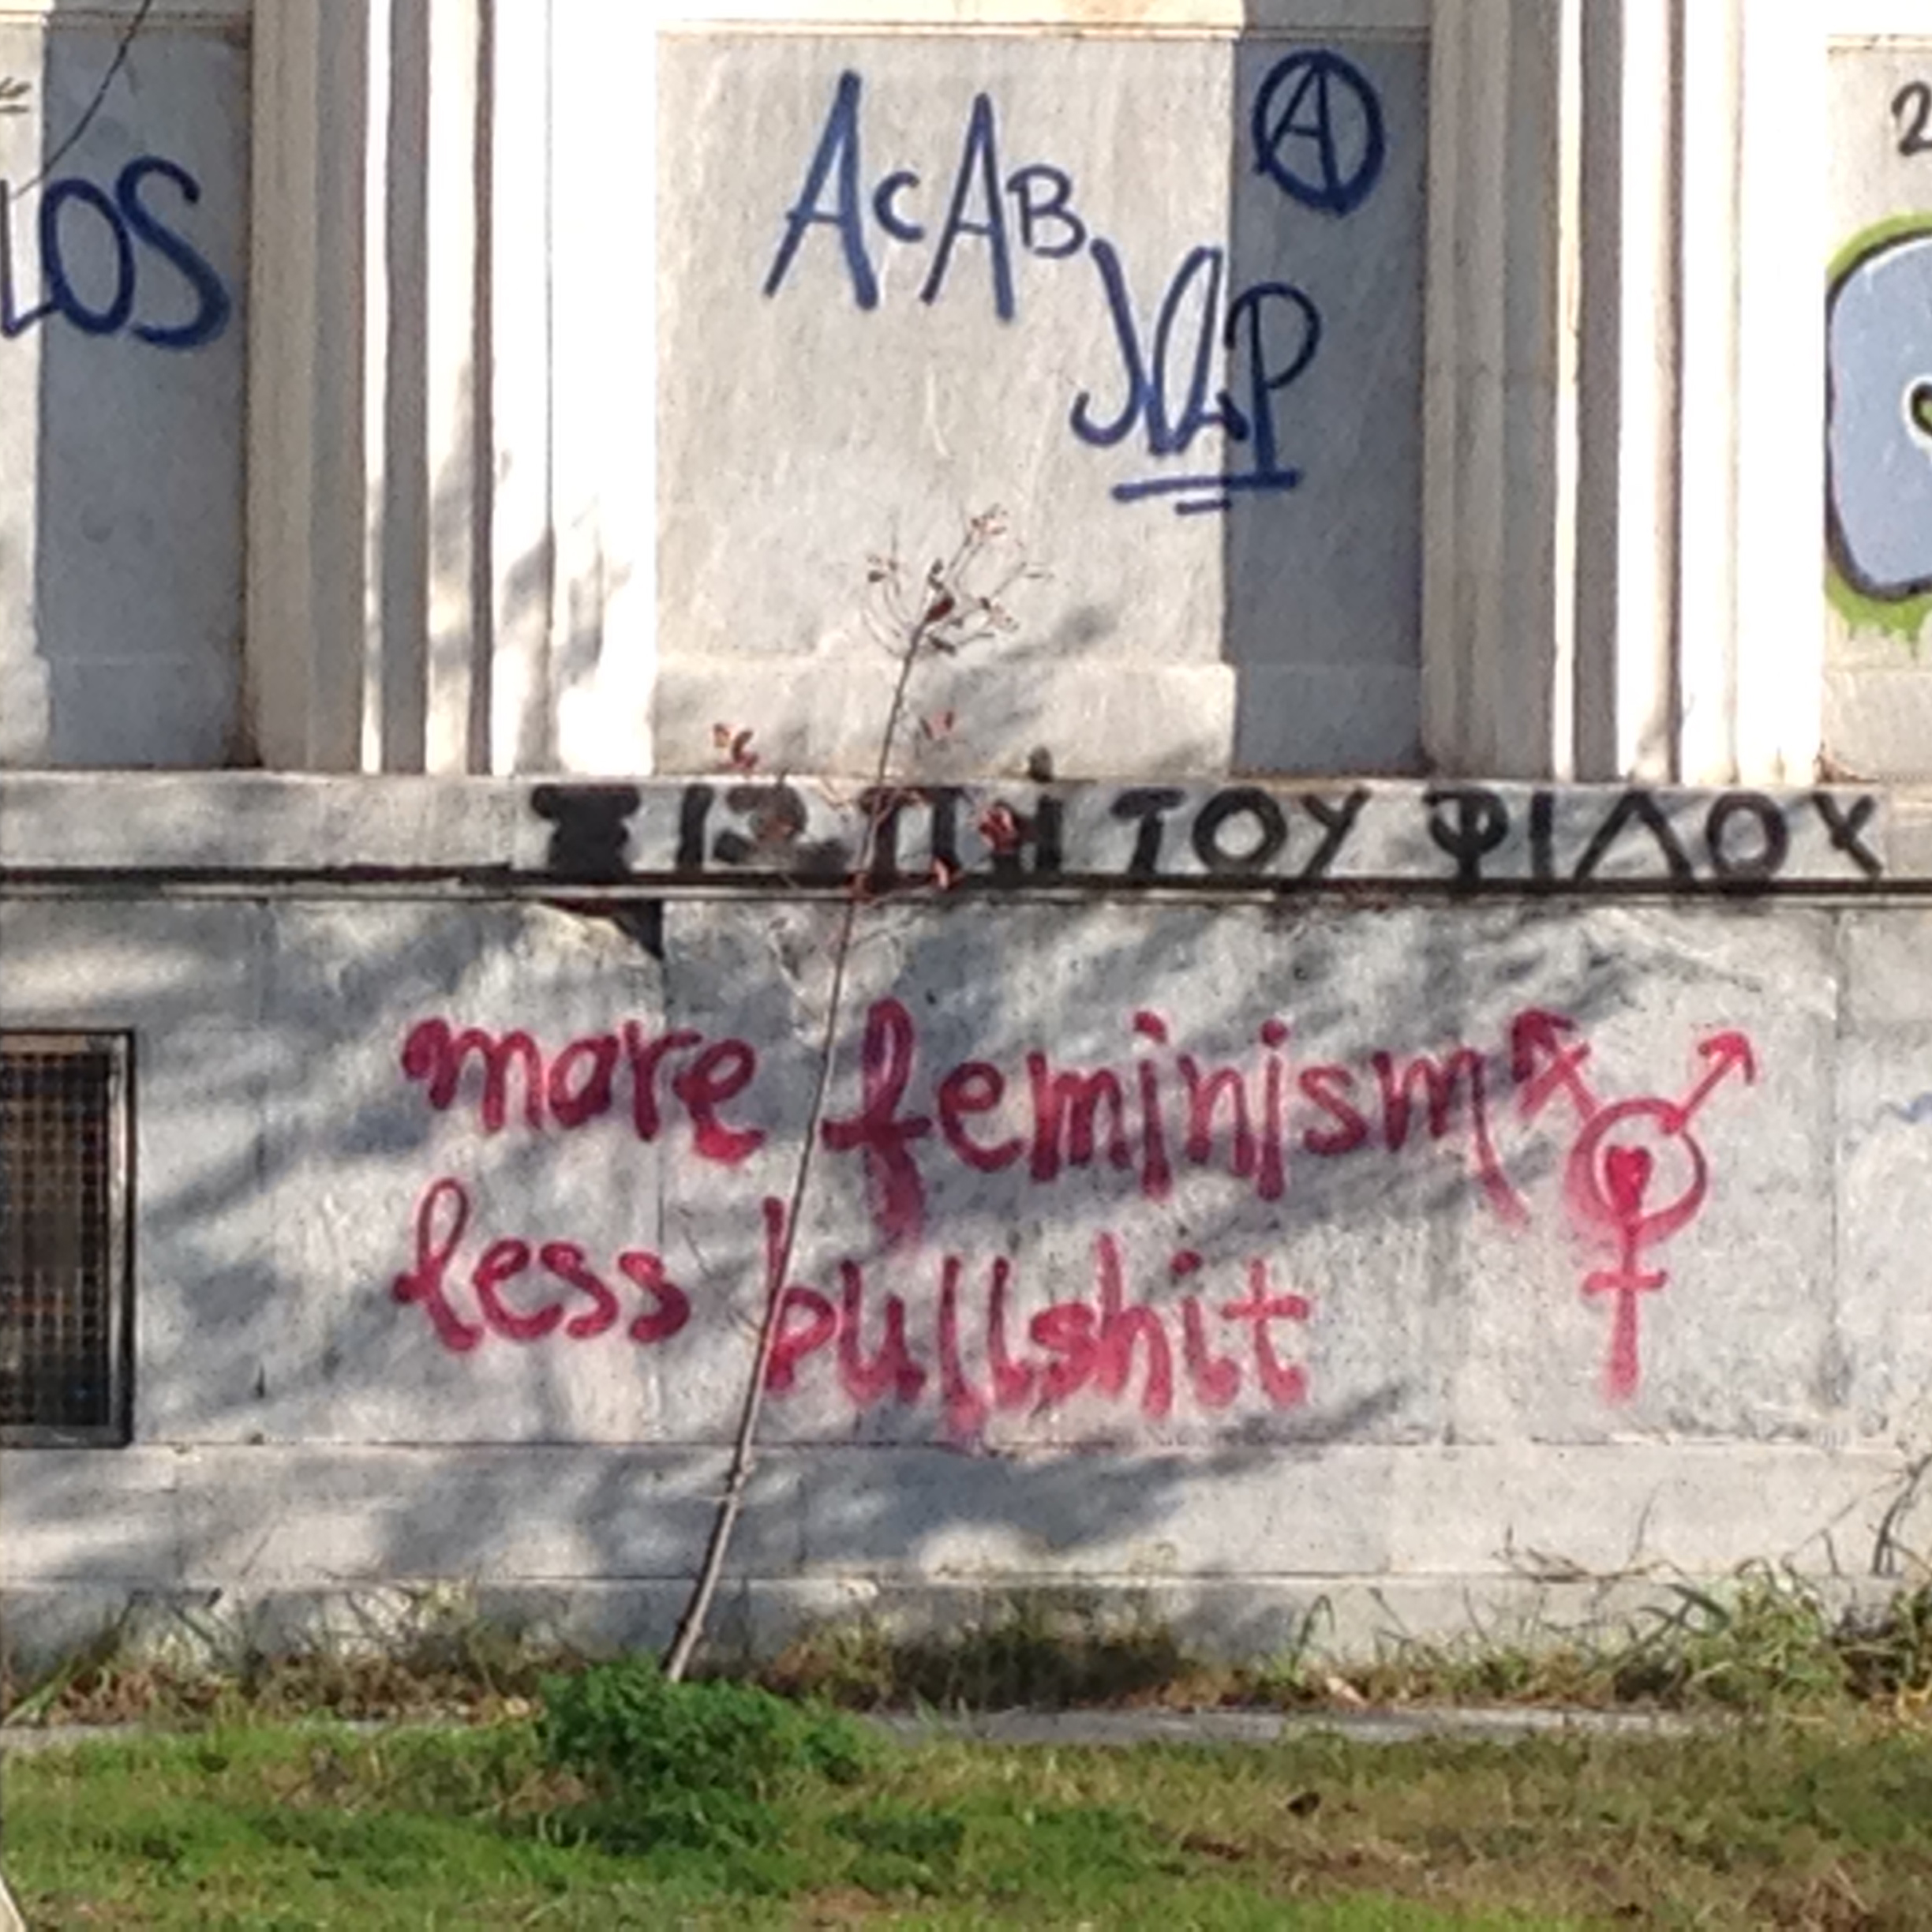 LOS
ACAB
A
2
ΣΙΩΠΗ ΤΟΥ ΦΙΛΟΥ
more feminism
less bullshit